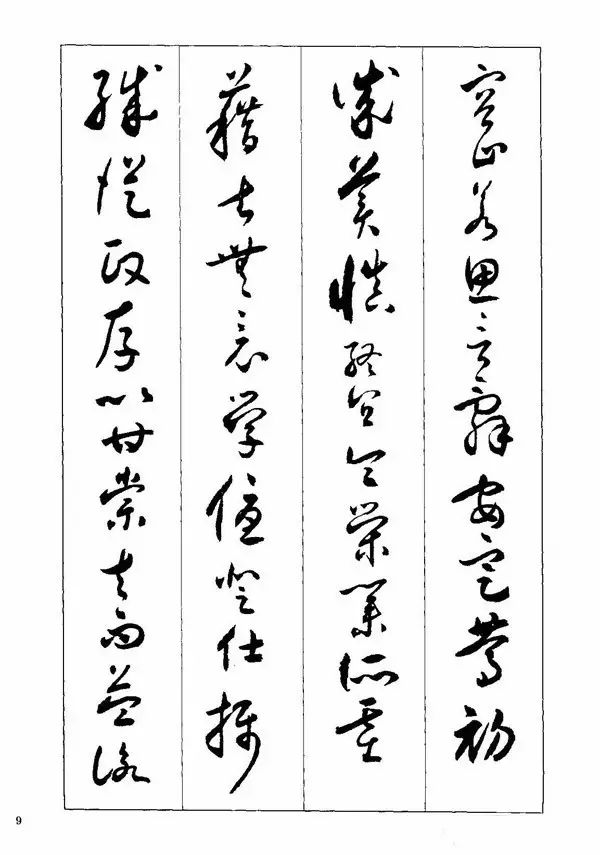 容止若思言辭安定篤初
誠美慎終宜令榮業所基
籍甚無竟學優登仕攝
職從政存以甘棠去而益詠
9